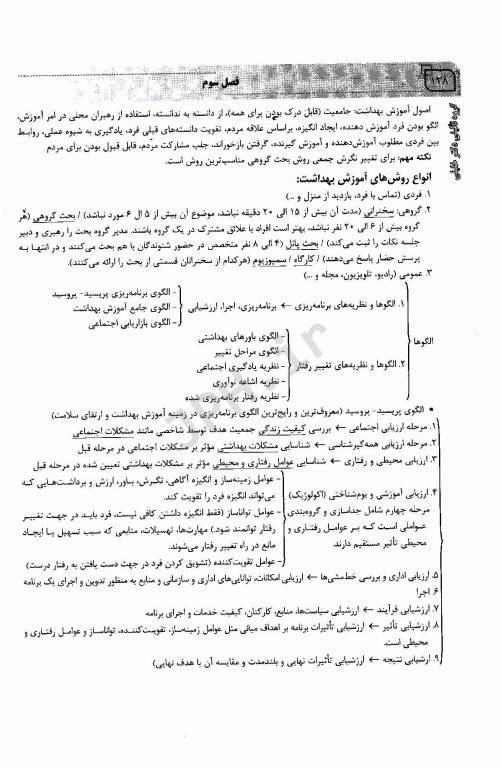 ۱۲۸
فصل سوم
گروه تألیفی دکتر خلیلی
اصول آموزش بهداشت: جامعیت (قابل درک بودن برای همه)، از دانسته به ندانسته، استفاده از رهبران محلی در امر آموزش،
الگو بودن فرد آموزش دهنده، ایجاد انگیزه، براساس علاقه مردم، تقویت دانسته‌های قبلی فرد، یادگیری به شیوه عملی، روابط
بین فردی مطلوب آموزش‌دهنده و آموزش گیرنده، گرفتن بازخوراند، جلب مشارکت مردم، قابل قبول بودن برای مردم
نکته مهم: برای تغییر نگرش جمعی روش بحث گروهی مناسب‌ترین روش است.
انواع روش‌های آموزش بهداشت:
۱. فردی (تماس با فرد، بازدید از منزل و ...)
۲. گروهی: سخنرانی (مدت آن بیش از ۱۵ الی ۲۰ دقیقه نباشد، موضوع آن بیش از ۵ الی ۶ مورد نباشد) / بحث گروهی (هر
گروه بیش از ۶ الی ۲۰ نفر نباشد، بهتر است افراد با علائق مشترک در یک گروه باشند. مدیر گروه بحث را رهبری و دبیر
جلسه نکات را ثبت می‌کند) / بحث پانل (۴ الی ۸ نفر متخصص در حضور شنوندگان با هم بحث می‌کنند و در انتها به
پرسش حضار پاسخ می‌دهند) / کارگاه / سمپوزیوم (هرکدام از سخنرانان قسمتی از بحث را ارائه می‌کنند).
۳. عمومی (رادیو، تلویزیون، مجله و ...)
الگوها
۱. الگوها و نظریه‌های برنامه‌ریزی ← برنامه‌ریزی، اجرا، ارزشیابی
- الگوی برنامه‌ریزی پریسید- پروسید
- الگوی جامع آموزش بهداشت
- الگوی بازاریابی اجتماعی
۲. الگوها و نظریه‌های تغییر رفتار
- الگوی باورهای بهداشتی
- الگوی مراحل تغییر
- نظریه یادگیری اجتماعی
- نظریه اشاعه نوآوری
- نظریه رفتار برنامه‌ریزی شده
• الگوی پریسید- پروسید (معروف‌ترین و رایج‌ترین الگوی برنامه‌ریزی در زمینه آموزش بهداشت و ارتقای سلامت)
۱. مرحله ارزیابی اجتماعی ← بررسی کیفیت زندگی جمعیت هدف توسط شاخصی مانند مشکلات اجتماعی
۲. مرحله ارزیابی همه‌گیرشناسی ← شناسایی مشکلات بهداشتی مؤثر بر مشکلات اجتماعی در مرحله قبل
۳. ارزیابی محیطی و رفتاری ← شناسایی عوامل رفتاری و محیطی مؤثر بر مشکلات بهداشتی تعیین شده در مرحله قبل
۴. ارزیابی آموزشی و بوم‌شناختی (اکولوژیک)
مرحله چهارم شامل جداسازی و گروه‌بندی
عواملی است کـه بـر عوامـل رفتـاری و
محیطی تأثیر مستقیم دارند.
- عوامل زمینه‌ساز و انگیزه آگاهی، نگـرش، بـاور، ارزش و برداشـت‌هایی کـه
می‌تواند انگیزه فرد را تقویت کند.
- عوامل تواناساز (فقط انگیزه داشتن کافی نیست، فرد بایـد در جهـت تغییـر
رفتار توانمند شود.) مهارت‌ها، تسهیلات، منابعی که سبب تسهیل یا ایجـاد
مانع در راه تغییر رفتار می‌شوند.
- عوامل تقویت‌کننده (تشویق کردن فرد در جهت دست یافتن به رفتار درست)
۵. ارزیابی اداری و بررسی خط‌مشی‌ها ← ارزیابی امکانات، توانایی‌های اداری و سازمانی و منابع به منظور تدوین و اجرای یک برنامه
۶. اجرا
۷. ارزشیابی فرآیند ← ارزشیابی سیاست‌ها، منابع، کارکنان، کیفیت خدمات و اجرای برنامه
۸. ارزشیابی تأثیر ← ارزشیابی تأثیرات برنامه بر اهداف میانی مثل عوامل زمینه‌ساز، تقویـت‌کننـده، تواناسـاز و عوامـل رفتـاری و
محیطی است.
۹. ارزشیابی نتیجه ← ارزشیابی تأثیرات نهایی و بلندمدت و مقایسه آن با هدف نهایی)